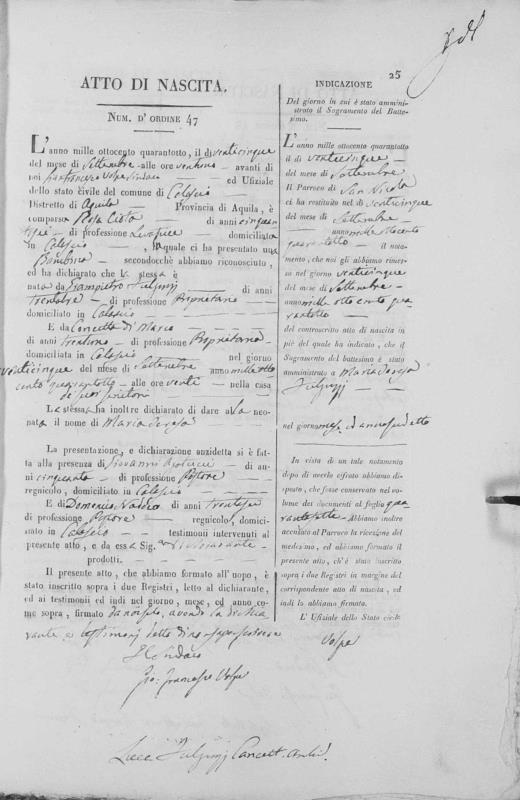 25
ATTO DI NASCITA.
NUM. D' ORDINE 47
L'anno mille ottocento quarantotto, il dì venticinque
del mese di Settembre alle ore ventuno avanti di
noi Gianfrancesco Volpe Sindaco ed Ufiziale
dello stato civile del comune di
Distretto di Aquila Provincia di Aquila, è
comparsa Rosa di anni cinquanta
di professione Levatrice domiciliata
in la quale ci ha presentato una
Bambina secondochè abbiamo riconosciuto,
ed ha dichiarato che la stessa è
nata da Giampietro Fulgenzj di anni
trentatre di professione Proprietario
domiciliato in
E da Concetta di Marco
di anni trentuno di professione Proprietaria
domiciliata in nel giorno
venticinque del mese di Settembre anno mille otto
cento quarantotto alle ore venti nella casa
de' suoi genitori
La stessa ha inoltre dichiarato di dare alla neo-
nata il nome di Maria Teresa
La presentazione, e dichiarazione anzidetta si è fat-
ta alla presenza di Giovanni di an-
ni cinquanta di professione Pastore
regnicolo, domiciliato in
E di Domenico di anni
di professione Pastore regnicolo, domici-
liato in testimoni intervenuti al
presente atto, e da essa Sig.ra Dichiarante
prodotti.
Il presente atto, che abbiamo formato all'uopo, è
stato inscritto sopra i due Registri, letto al dichiarante,
ed ai testimoni ed indi nel giorno, mese, ed anno co-
me sopra, firmato da noi solo, avendo la dichia
rante e testimonj detto di non saper scrivere
Il Sindaco
Gio: Francesco Volpe
Luca Fulgenzj Cancell. Arch.
INDICAZIONE
Del giorno in cui è stato ammini-
strato il Sagramento del Batte-
simo.
L'anno mille ottocento quarantotto
il dì venticinque
del mese di Settembre
Il Parroco di San Nicola
ci ha restituito nel dì venticinque
del mese di Settembre
anno mille ottocento
quarantotto il nota-
mento, che noi gli abbiamo rimes-
so nel giorno venticinque
del mese di Settembre
anno mille otto cento qua
rantotto
del controscritto atto di nascita in
piè del quale ha indicato, che il
Sagramento del battesimo è stato
amministrato a Maria Teresa
Fulgenzj
nel giorno mese, ed anno suddetto
In vista di un tale notamento
dopo di averlo cifrato abbiamo di-
sposto, che fosse conservato nel vo-
lume dei documenti al foglio qua
rantasette. Abbiamo inoltre
accusato al Parroco la ricezione del
medesimo, ed abbiamo formato il
presente atto, ch'è stato inscritto
sopra i due Registri in margine del
corrispondente atto di nascita, ed
indi lo abbiamo firmato.
L' Ufiziale dello Stato civile
Volpe